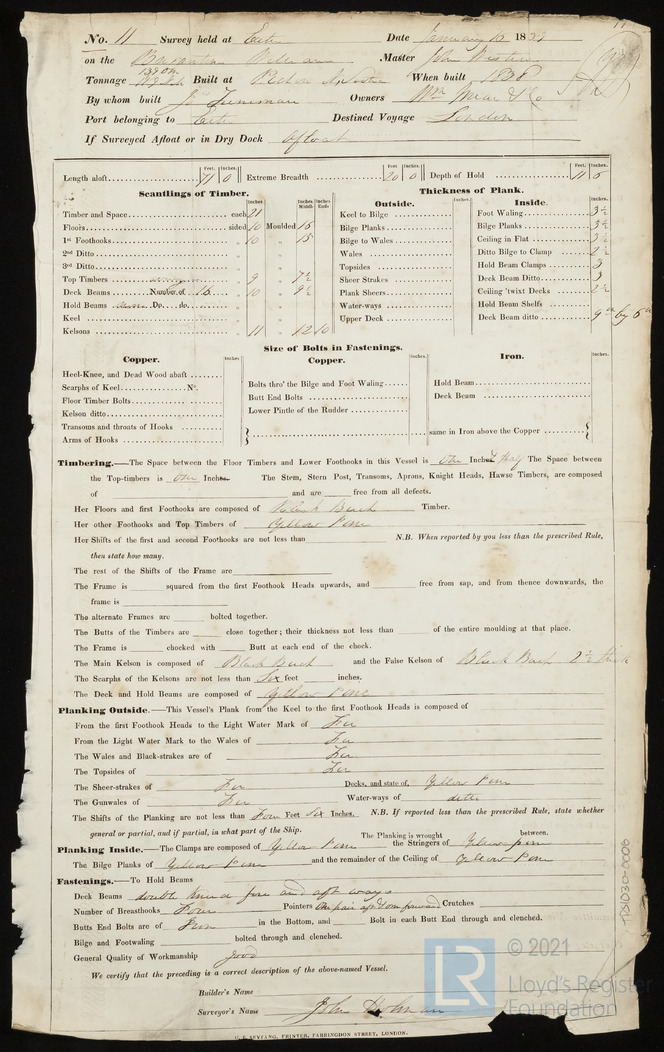 No. 11 Survey held at Date January 16 1839
on the Master John
Tonnage Built at When built 1838
By whom built Owners Wm & Co
Port belonging to Destined Voyage London
If Surveyed Afloat or in Dry Dock Afloat
Length aloft 71 0 Extreme Breadth 20 0 Depth of Hold 11 6
Feet. Inches. Feet Inches. Feet. Inches.
Scantlings of Timber.
Inches Inches Middle Inches Ends
Timber and Space each 21
Floors sided 10 Moulded 15
1st Foothooks 10 „ 15
2nd Ditto
3rd Ditto
Top Timbers 9 „ 7½
Deck Beams Number of 16 10 „ 9½
Hold Beams Do. do.
Keel
Kelsons 11 „ 12 10
Thickness of Plank.
Outside.
Inches
Keel to Bilge
Bilge Planks
Bilge to Wales
Wales
Topsides
Sheer Strakes
Plank Sheers
Water-ways
Upper Deck
Inside.
Inches
Foot Waling 3½
Bilge Planks 3½
Ceiling in Flat
Ditto Bilge to Clamp 2½
Hold Beam Clamps 3
Deck Beam Ditto 3
Ceiling 'twixt Decks 2½
Hold Beam Shelfs
Deck Beam ditto 9 in by 6 in
Size of Bolts in Fastenings.
Copper.
Inches
Heel-Knee, and Dead Wood abaft
Scarphs of Keel No.
Floor Timber Bolts
Kelson ditto
Transoms and throats of Hooks
Arms of Hooks
Copper.
Inches
Bolts thro' the Bilge and Foot Waling
Butt End Bolts
Lower Pintle of the Rudder
Iron.
Inches.
Hold Beam
Deck Beam
same in Iron above the Copper
Timbering.—The Space between the Floor Timbers and Lower Foothooks in this Vessel is One Inch & half The Space between
the Top-timbers is One Inches The Stem, Stern Post, Transoms, Aprons, Knight Heads, Hawse Timbers, are composed
of and are free from all defects.
Her Floors and first Foothooks are composed of Black Birch Timber.
Her other Foothooks and Top Timbers of Yellow Pine
Her Shifts of the first and second Foothooks are not less than N.B. When reported by you less than the prescribed Rule,
then state how many.
The rest of the Shifts of the Frame are
The Frame is squared from the first Foothook Heads upwards, and free from sap, and from thence downwards, the
frame is
The alternate Frames are bolted together.
The Butts of the Timbers are close together; their thickness not less than of the entire moulding at that place.
The Frame is chocked with Butt at each end of the chock.
The Main Kelson is composed of Black Birch and the False Kelson of Black Birch 2½ thick
The Scarphs of the Kelsons are not less than Six feet inches.
The Deck and Hold Beams are composed of Yellow Pine
Planking Outside.—This Vessel's Plank from the Keel to the first Foothook Heads is composed of
From the first Foothook Heads to the Light Water Mark of Fir
From the Light Water Mark to the Wales of Fir
The Wales and Black-strakes are of Fir
The Topsides of Fir
The Sheer-strakes of Fir Decks, and state of, Yellow Pine
The Gunwales of Fir Water-ways of ditto
The Shifts of the Planking are not less than Four Feet Six Inches. N.B. If reported less than the prescribed Rule, state whether
general or partial, and if partial, in what part of the Ship. The Planking is wrought between.
Planking Inside.—The Clamps are composed of Yellow Pine the Stringers of Yellow pine
The Bilge Planks of Yellow Pine and the remainder of the Ceiling of Yellow Pine
Fastenings.—To Hold Beams
Deck Beams double kneed fore and aft ways
Number of Breasthooks Four Pointers One pair aft forward Crutches
Butts End Bolts are of Iron in the Bottom, and Bolt in each Butt End through and clenched.
Bilge and Footwaling bolted through and clenched.
General Quality of Workmanship good
We certify that the preceding is a correct description of the above-named Vessel.
Builder's Name
Surveyor's Name John Holman
C. F. SEYFANG, PRINTER, FARRINGDON STREET, LONDON.
LR © 2021
Lloyd's Register
Foundation